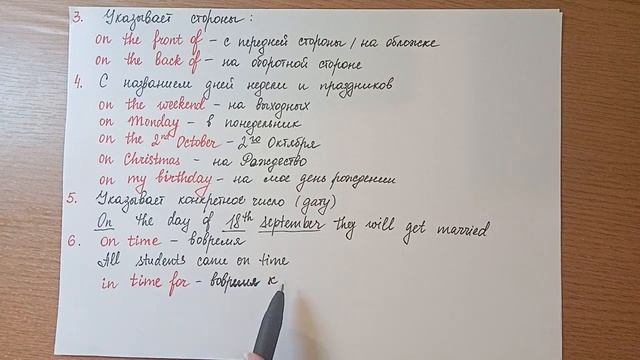 3. Указывает стороны:
on the front of – с передней стороны / на обложке
on the back of – на оборотной стороне
4. С названием дней недели и праздников
on the weekend – на выходных
on Monday – в понедельник
on the 2nd October – 2го Октября
on Christmas – на Рождество
on my birthday – на мое день рождении
5. Указывает конкретное число (дату)
On the day of 18th september they will get married
6. on time – вовремя
All students came on time
in time for – вовремя к